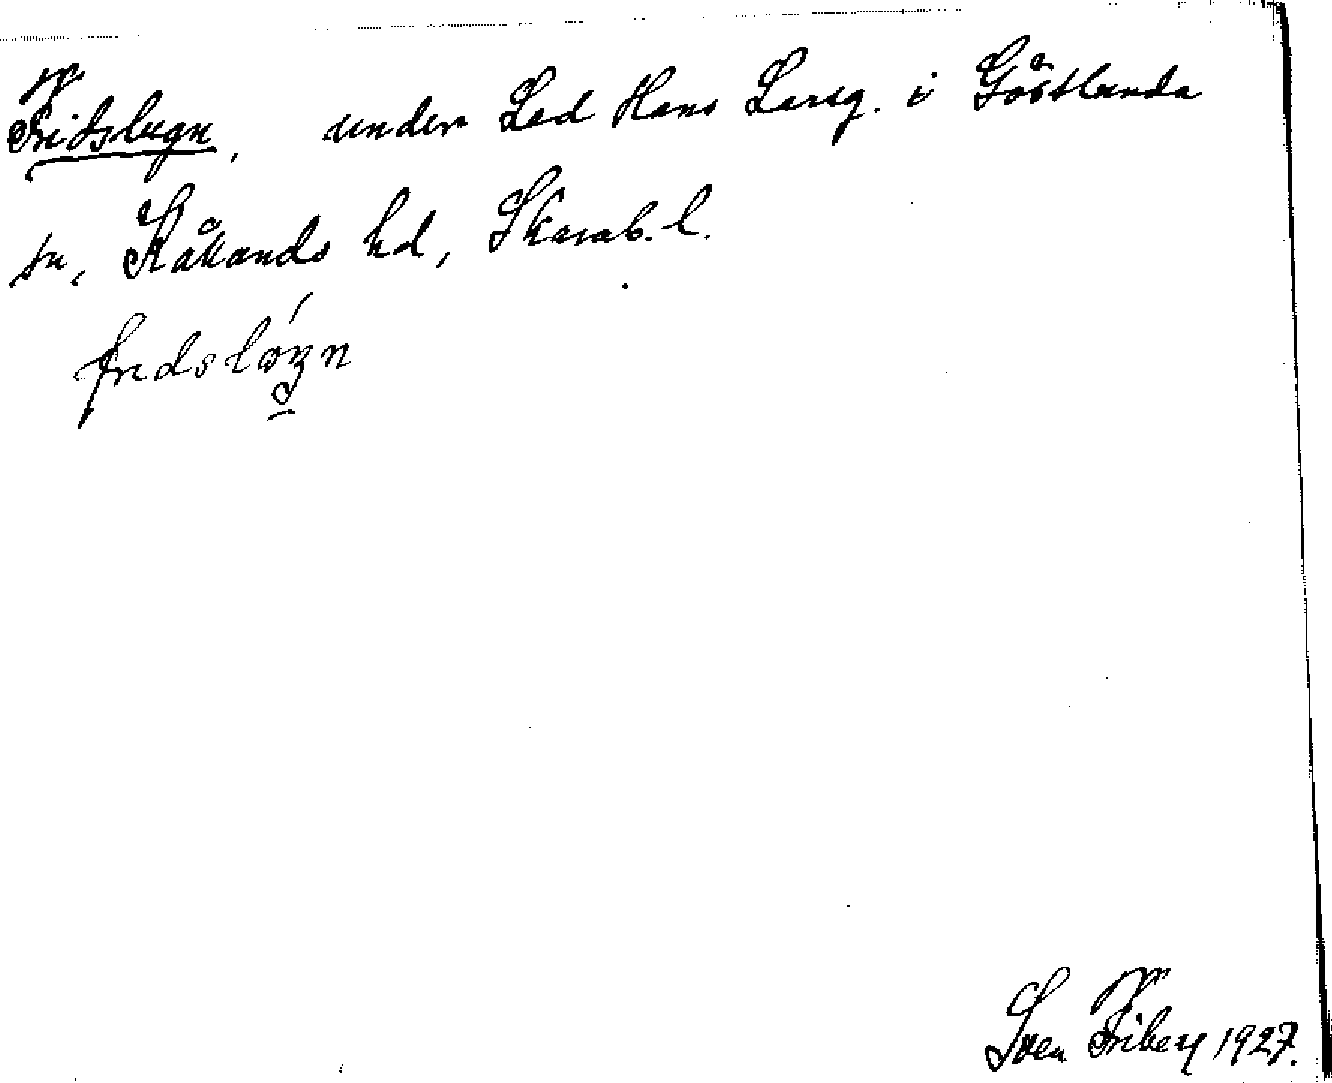 Fridslugn, under Led Hans Larsg. i Göstlunda
sn, Kåkands hd, Skarab. l.
fridsløgn
Sven Friberg 1927.